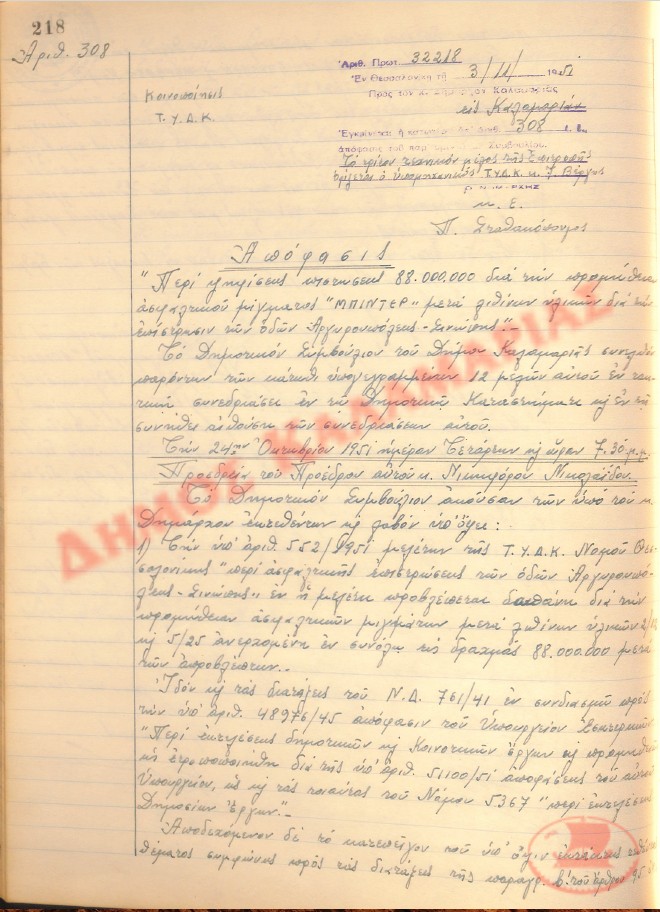 218
Ἀριθ. 308
Κοινοποίησις
Τ.Υ.Δ.Κ.
Ἀριθ. Πρωτ. 32218
Ἐν Θεσσαλονίκῃ τῇ 3/11/1951
Πρὸς τὸν Δῆμον Καλαμαριᾶς
εἰς Καλαμαριὰν
Ἐγκρίνεται ἡ 308
ἀπόφασις τοῦ Συμβουλίου.
Τὸ τρίτον τεχνικὸν μέλος τῆς Ἐπιτροπῆς
ὁρίζεται ὁ ὑπομηχανικὸς Τ.Υ.Δ.Κ. κ.
Ο ΝΟΜΑΡΧΗΣ
κ. Ε.
Π. Σταθακόπουλος
Ἀπόφασις
"Περὶ ψηφίσεως πιστώσεως 88.000.000 διὰ τὴν προμήθειαν
ἀσφαλτικοῦ μίγματος "ΜΠΙΝΤΕΡ" μετὰ λιθίνων ὑλικῶν διὰ τὴν
ἐπίστρωσιν τῶν ὁδῶν Ἀργυρουπόλεως-Σινώπης".-
Τὸ Δημοτικὸν Συμβούλιον τοῦ Δήμου Καλαμαριᾶς συνελθὸν
παρόντων τῶν κάτωθι ὑπογεγραμμένων 12 μελῶν αὐτοῦ ἐν τακ-
τικῇ συνεδριάσει ἐν τῷ Δημοτικῷ Καταστήματι κ ἐν τῇ
συνήθει αἰθούσῃ τῶν συνεδριάσεων αὐτοῦ.
Τὴν 24ην Ὀκτωβρίου 1951 ἡμέραν Τετάρτην κ ὥραν 7.30 μ.μ.
Προεδρίᾳ τοῦ Προέδρου αὐτοῦ κ. Νικηφόρου Νικολαΐδου.
Τὸ Δημοτικὸν Συμβούλιον ἀκοῦσαν τῶν ὑπὸ τοῦ κ.
Δημάρχου ἐκτεθέντων κ λαβὸν ὑπ' ὄψει:
1) Τὴν ὑπ' ἀριθ. 552/1951 μελέτην τῆς Τ.Υ.Δ.Κ. Νομοῦ Θεσ-
σαλονίκης "περὶ ἀσφαλτικῆς ἐπιστρώσεως τῶν ὁδῶν Ἀργυρουπό-
λεως-Σινώπης", ἐν ᾗ μελέτῃ προβλέπεται δαπάνη διὰ τὴν
προμήθειαν ἀσφαλτικῶν μιγμάτων μετὰ λιθίνων ὑλικῶν
κ 5/25 ἀνερχομένη ἐν συνόλῳ εἰς δραχμὰς 88.000.000 μετὰ
τῶν ἀπροβλέπτων.-
Ἰδὸν κ τὰς διατάξεις τοῦ Ν.Δ. 761/41 ἐν συνδιασμῷ πρὸς
τὴν ὑπ' ἀριθ. 48976/45 ἀπόφασιν τοῦ Ὑπουργείου Ἐσωτερικῶν
"Περὶ ἐκτελέσεως δημοτικῶν κ Κοινοτικῶν ἔργων κ προμηθειῶν
ὡς ἐτροποποιήθη διὰ τῆς ὑπ' ἀριθ. 51100/51 ἀποφάσεως τοῦ αὐτοῦ
Ὑπουργείου, ὡς κ τὰς τοιαύτας τοῦ Νόμου 5367 "περὶ ἐκτελέσεως
Δημοσίων ἔργων".-
Ἀποδεχόμενον δὲ τὸ κατεπεῖγον τοῦ ὑπ' ὄψιν
θέματος συμφώνως πρὸς τὰς διατάξεις τῆς παραγρ. β' τοῦ ἄρθρου 95
ΔΗΜΟΣ ΚΑΛΑΜΑΡΙΑΣ